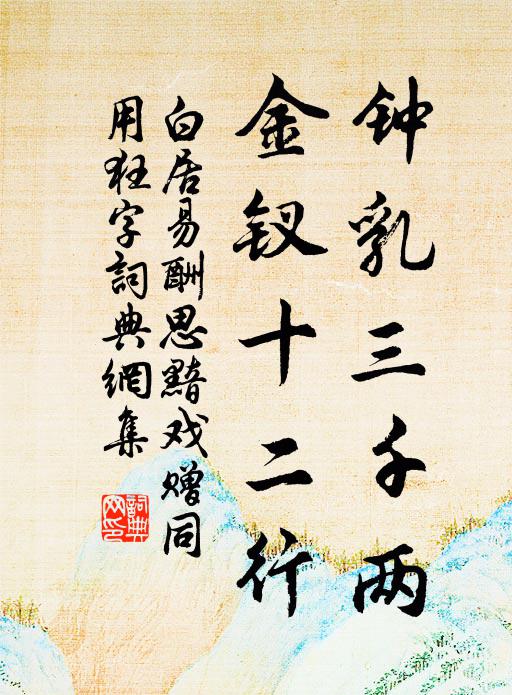 钟乳三千两
金钗十二行
白居易酬思黯戏赠同
用狂字詞典網集
詞典
网印